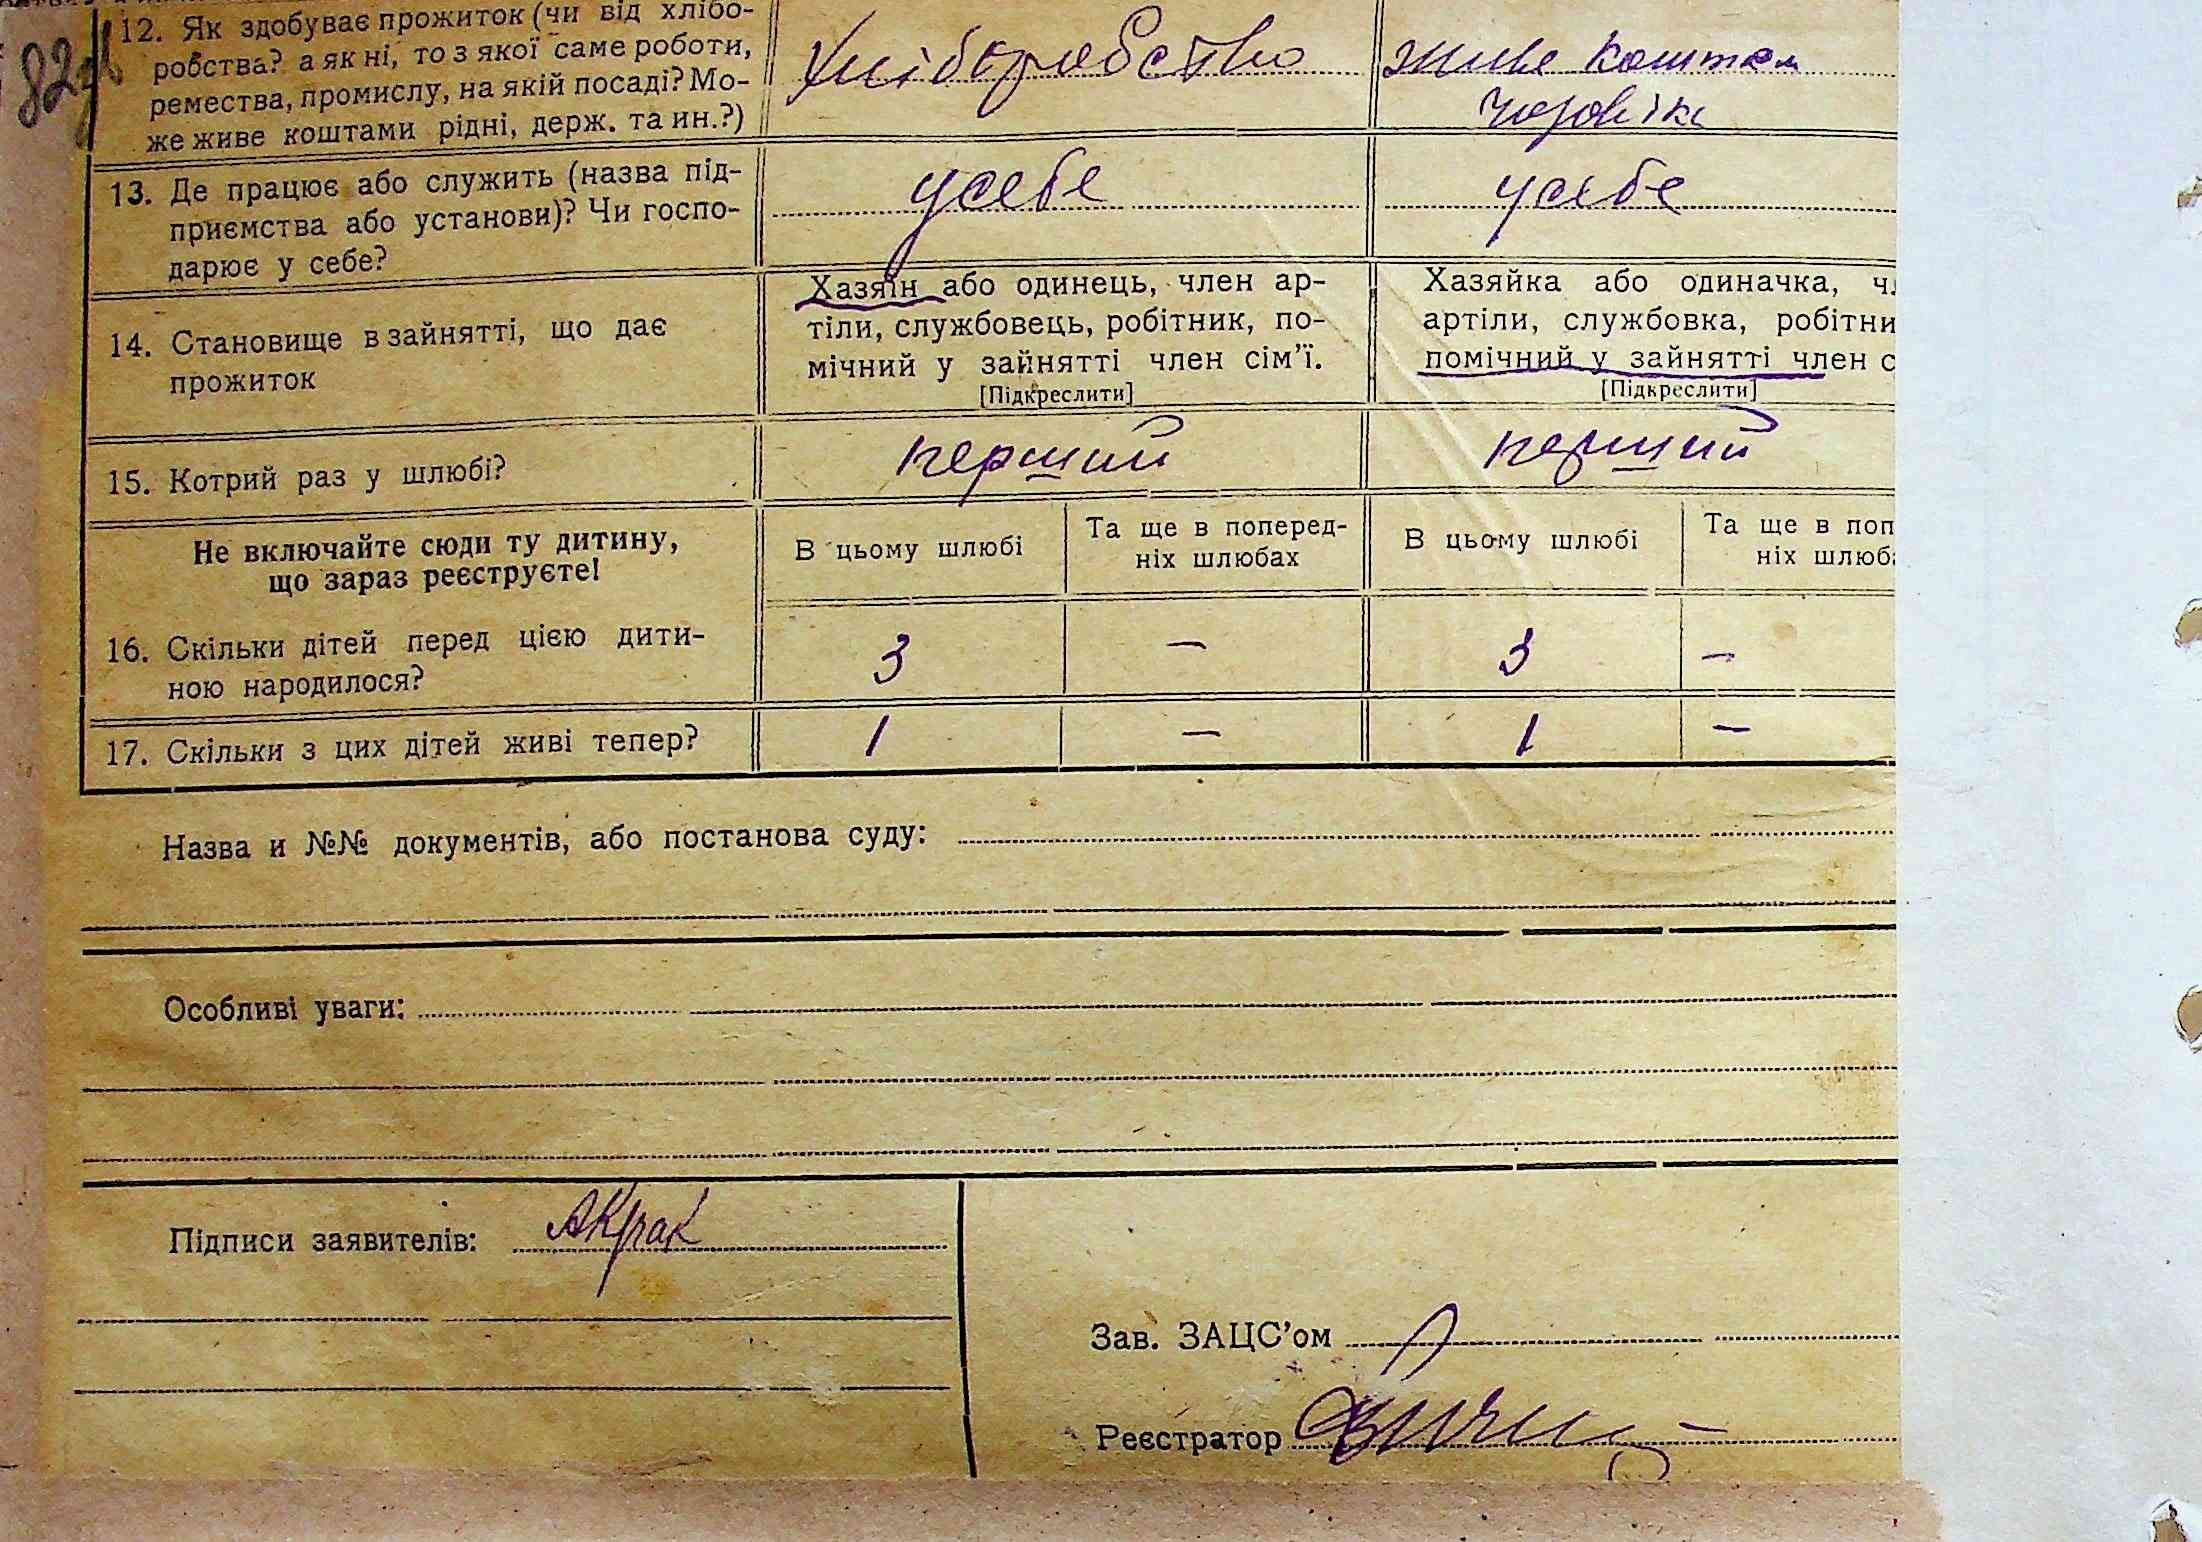 12. Як здобуває прожиток (чи від хлібо-
робства? а як ні, то з якої саме роботи,
ремества, промислу, на якій посаді? Мо-
же живе коштами рідні, держ. та ин.?)
Хліборобство
живе коштом
чоловіка
13. Де працює або служить (назва під-
приємства або установи)? Чи госпо-
дарює у себе?
у себе
у себе
14. Становище в зайнятті, що дає
прожиток
Хазяїн або одинець, член ар-
тіли, службовець, робітник, по-
мічний у зайнятті член сім'ї.
[Підкреслити]
Хазяйка або одиначка,
артіли, службовка, робітни
помічний у зайнятті член с
[Підкреслити]
15. Котрий раз у шлюбі?
перший
перший
Не включайте сюди ту дитину,
що зараз реєструєте!
В цьому шлюбі
Та ще в поперед-
ніх шлюбах
В цьому шлюбі
Та ще в поп
ніх шлюб
16. Скільки дітей перед цією дити-
ною народилося?
3 — 3 —
17. Скільки з цих дітей живі тепер?
1 — 1 —
Назва и №№ документів, або постанова суду:
Особливі уваги:
Підписи заявителів: АКрак
Зав. ЗАЦС'ом
Реєстратор